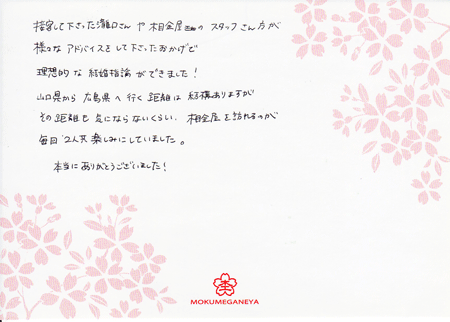 接客して下さった瀧口さんや杢目金屋のスタッフさん方が
様々なアドバイスをして下さったおかげで
理想的な結婚指輪ができました！
山口県から広島県へ行く距離は結構ありますが
その距離も気にならないくらい、杢目金屋を訪れるのが
毎回2人共楽しみにしていました。
本当にありがとうございました！
MOKUMEGANEYA